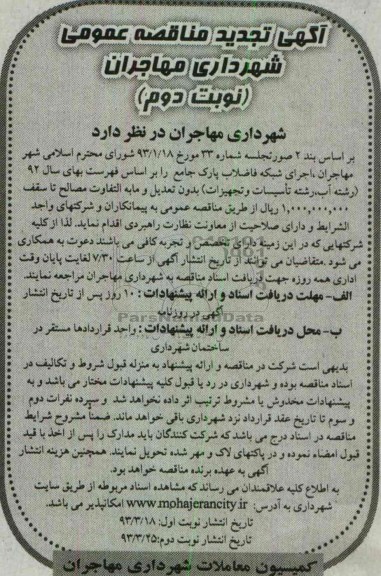 آگهی تجدید مناقصه عمومی
شهرداری مهاجران
(نوبت دوم)
شهرداری مهاجران در نظر دارد
بر اساس بند ۲ صورتجلسه شماره ۳۳ مورخ ۹۳/۱/۱۸ شورای محترم اسلامی شهر
مهاجران ،اجرای شبکه فاضلاب پارک جامع را بر اساس فهرست بهای سال ۹۲
(رشته آب،رشته تأسیسات وتجهیزات) بدون تعدیل و مابه التفاوت مصالح تا سقف
۱,۰۰۰,۰۰۰,۰۰۰ ریال از طریق مناقصه عمومی به پیمانکاران و شرکتهای واجد
الشرایط و دارای صلاحیت از معاونت نظارت راهبردی اقدام نماید. لذا از کلیه
شرکتهایی که در این زمینه دارای تخصص و تجربه کافی می باشند دعوت به همکاری
می شود .متقاضیان می توانند از تاریخ انتشار آگهی از ساعت ۷/۳۰ لغایت پایان وقت
اداری همه روزه جهت دریافت اسناد مناقصه به شهرداری مهاجران مراجعه نمایند.
الف- مهلت دریافت اسناد و ارائه پیشنهادات : ۱۰ روز پس از تاریخ انتشار
آگهی در روزنامه
ParsNamadData
ب- محل دریافت اسناد و ارائه پیشنهادات : واحد قراردادها مستقر در
ساختمان شهرداری
بدیهی است شرکت در مناقصه و ارائه پیشنهاد به منزله قبول شروط و تکالیف در
اسناد مناقصه بوده و شهرداری در رد یا قبول کلیه پیشنهادات مختار می باشد و به
پیشنهادات مخدوش یا مشروط ترتیب اثر داده نخواهد شد و سپرده نفرات دوم
و سوم تا تاریخ عقد قرارداد نزد شهرداری باقی خواهد ماند. ضمناً مشروح شرایط
مناقصه در اسناد درج می باشد که شرکت کنندگان باید مدارک را پس از اخذ با قید
قبول امضاء نموده و در پاکتهای لاک و مهر شده تحویل نمایند. همچنین هزینه انتشار
آگهی به عهده برنده مناقصه خواهد بود.
به اطلاع کلیه علاقمندان می رساند که مشاهده اسناد مربوطه از طریق سایت
شهرداری به آدرس: www.mohajerancity.ir امکانپذیر می باشد.
تاریخ انتشار نوبت اول: ۹۳/۳/۱۸
تاریخ انتشار نوبت دوم:
کمیسیون معاملات شهرداری مهاجران